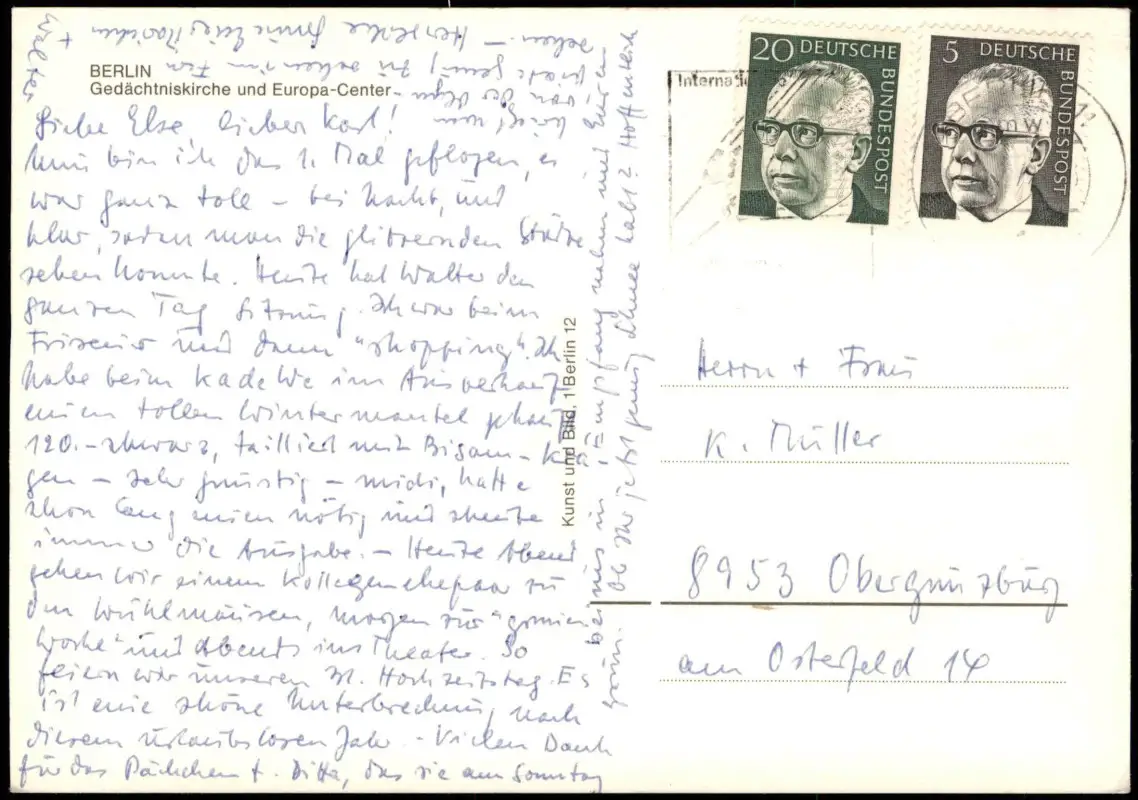 BERLIN
Gedächtniskirche und Europa-Center
Liebe Else, lieber Karl!
Nun bin ich das 1. Mal geflogen, es
war ganz toll – bei Nacht, und
klar, sodass man die glitzernden Städte
sehen konnte. Heute hat Walter den
ganzen Tag Sitzung. Ich war beim
Friseur und dann "shopping". Ich
habe beim KadeWe im Ausverkauf
einen tollen Wintermantel gekauft
120.- schwarz, tailliert mit Bisam-Kra
gen – sehr günstig – midi, hatte
schon lang einen nötig und scheute
immer die Ausgabe. – Heute Abend
gehen wir einem Kollegenehepaar zu
den Wühlmäusen, morgen zur "grünen
Woche" und abends ins Theater. So
feiern wir unseren 31. Hochzeitstag. Es
ist eine schöne Unterbrechung, nach
diesem urlaubslosen Jahr. – Vielen Dank
für das Päckchen +. Bitte, das sie am Sonntag
bei uns in Empfang nahmen und Euren
Ob Ihr jetzt genug Schnee habt? Hoffentlich
kriegt man
von der
genug zu sehen im Fern
sehen. – Herzliche Grüße Eure +
Walter
Kunst und Bild, 1 Berlin 12
Internatio
20 DEUTSCHE BUNDESPOST
5 DEUTSCHE BUNDESPOST
Herrn + Frau
K. Müller
8953 Obergünzburg
am Osterfeld 14